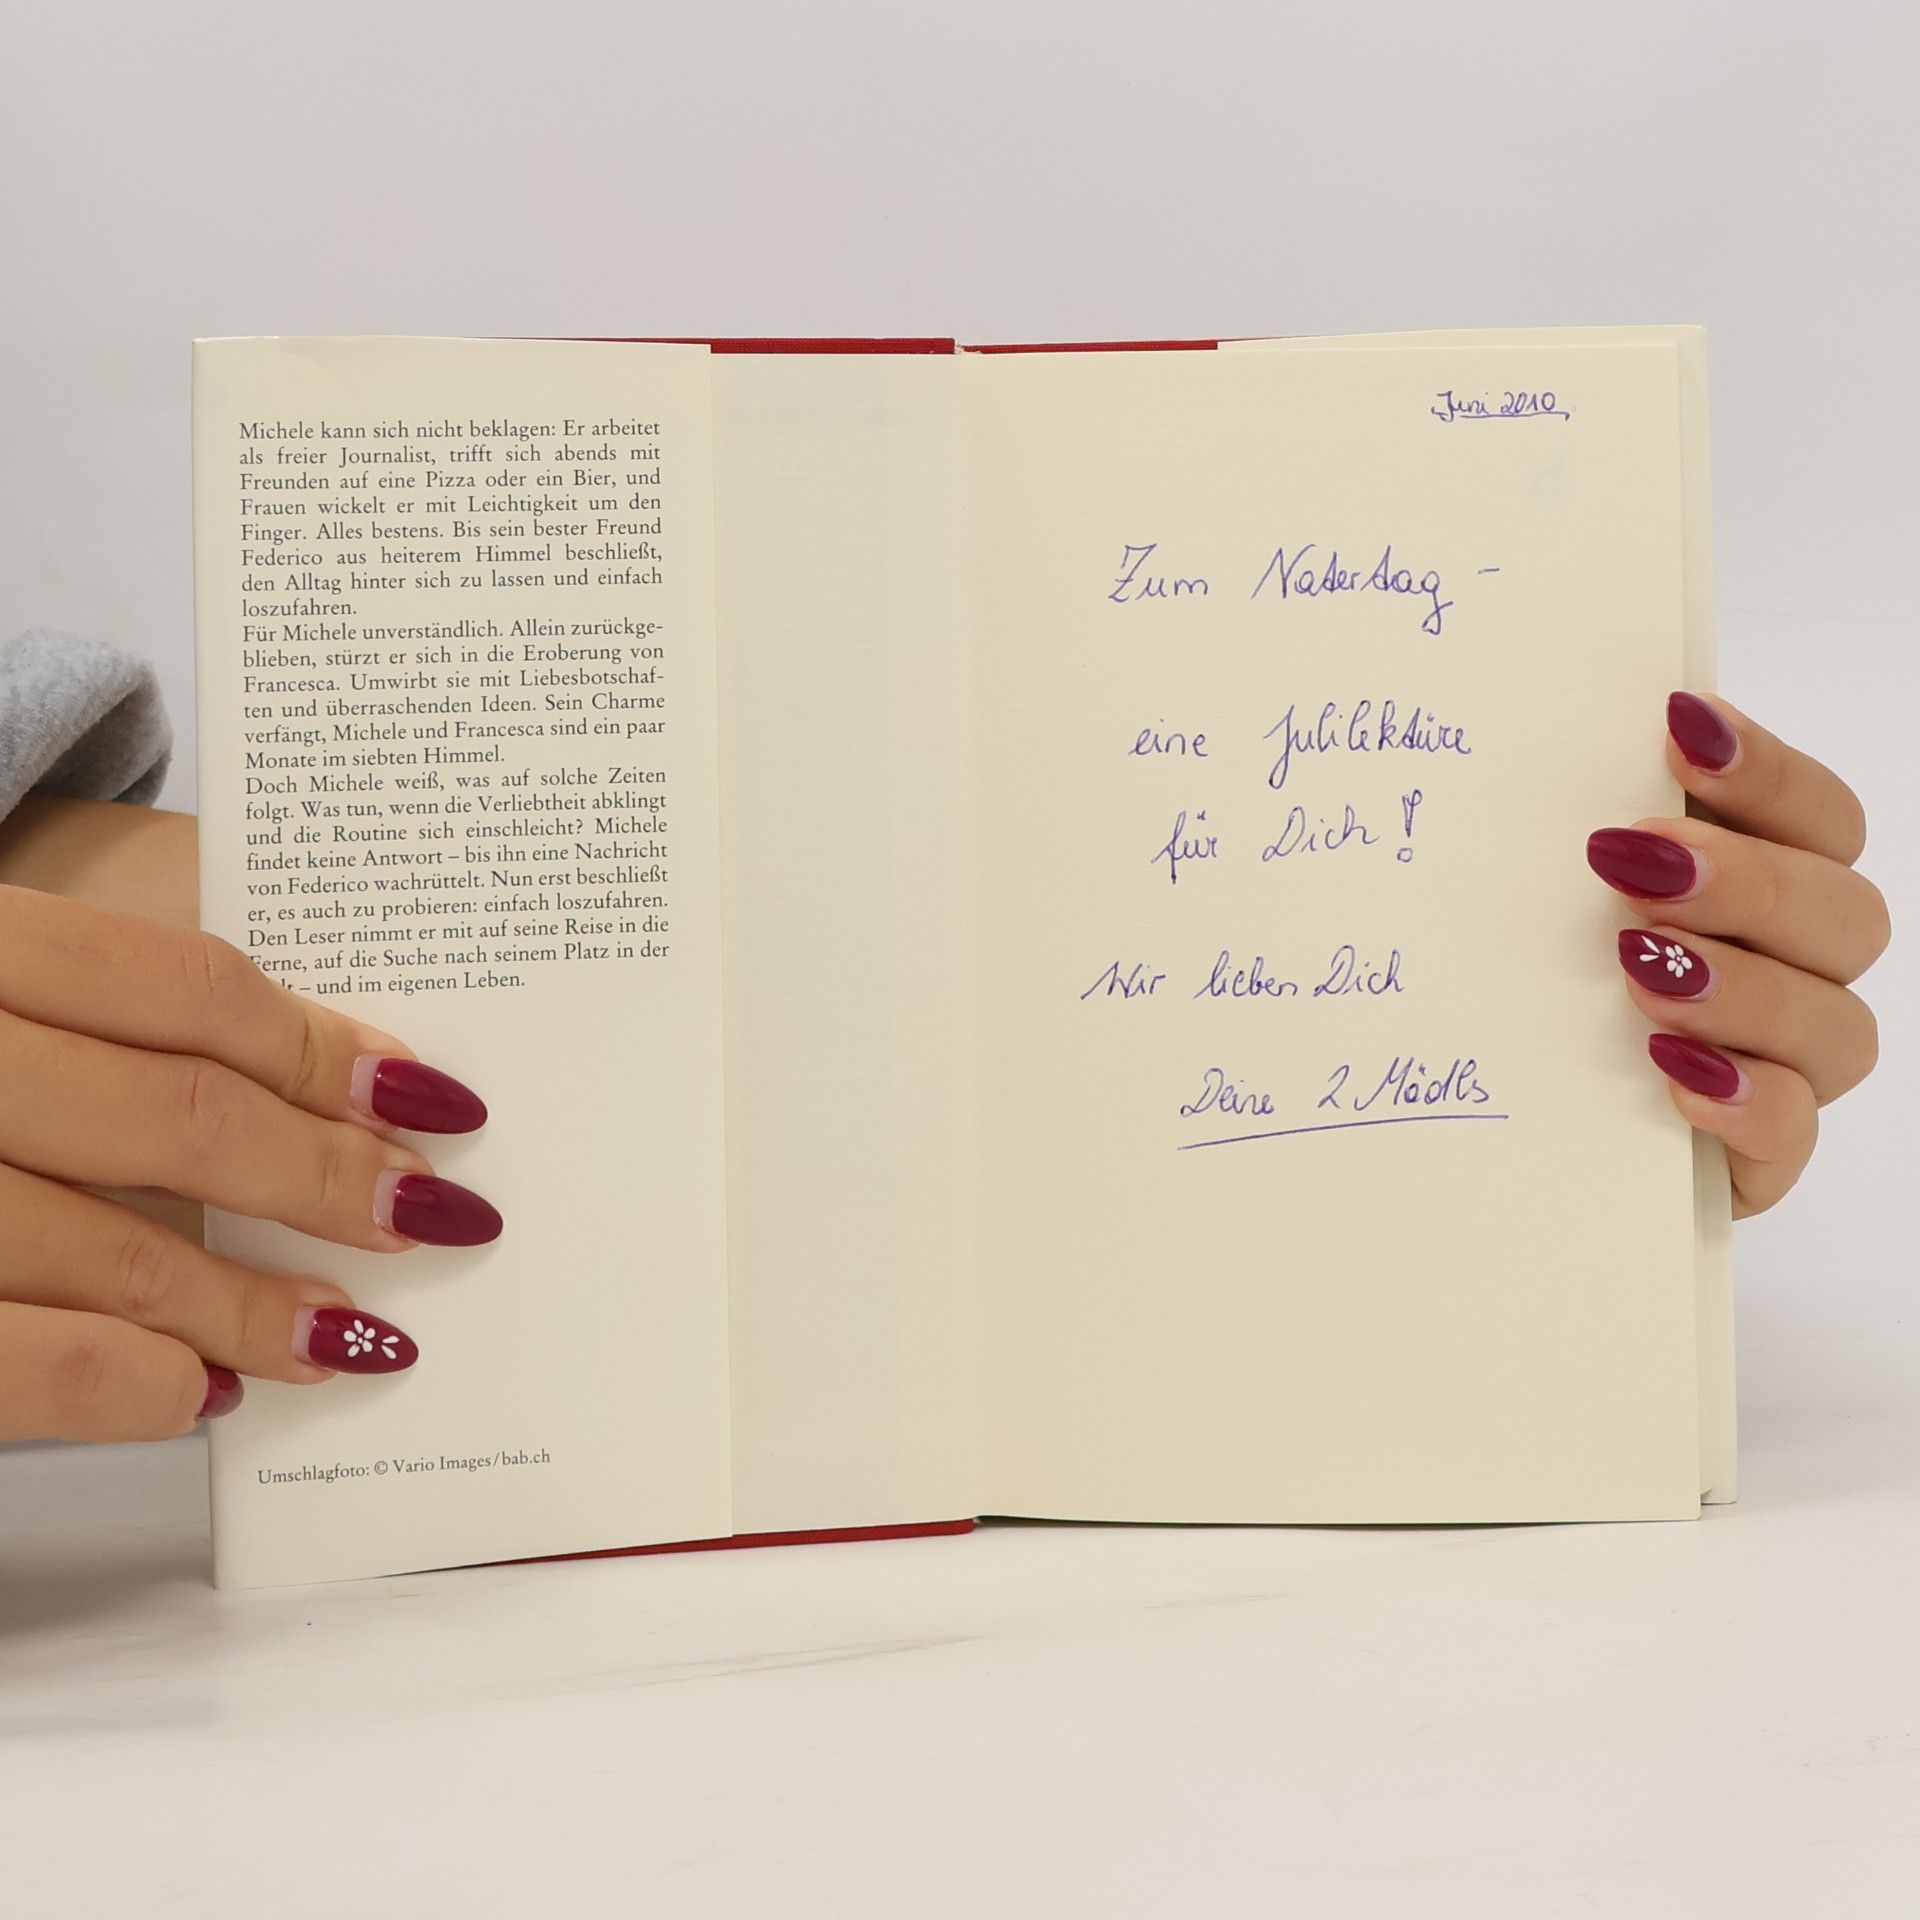 Michele kann sich nicht beklagen: Er arbeitet
als freier Journalist, trifft sich abends mit
Freunden auf eine Pizza oder ein Bier, und
Frauen wickelt er mit Leichtigkeit um den
Finger. Alles bestens. Bis sein bester Freund
Federico aus heiterem Himmel beschließt,
den Alltag hinter sich zu lassen und einfach
loszufahren.
Für Michele unverständlich. Allein zurückge-
blieben, stürzt er sich in die Eroberung von
Francesca. Umwirbt sie mit Liebesbotschaf-
ten und überraschenden Ideen. Sein Charme
verfängt, Michele und Francesca sind ein paar
Monate im siebten Himmel.
Doch Michele weiß, was auf solche Zeiten
folgt. Was tun, wenn die Verliebtheit abklingt
und die Routine sich einschleicht? Michele
findet keine Antwort – bis ihn eine Nachricht
von Federico wachrüttelt. Nun erst beschließt
er, es auch zu probieren: einfach loszufahren.
Den Leser nimmt er mit auf seine Reise in die
Ferne, auf die Suche nach seinem Platz in der
– und im eigenen Leben.
Umschlagfoto: © Vario Images/bab.ch
Juni 2010
Zum Vatertag –
eine Julilektüre
für Dich!
Wir lieben Dich
Deine 2 Mädls